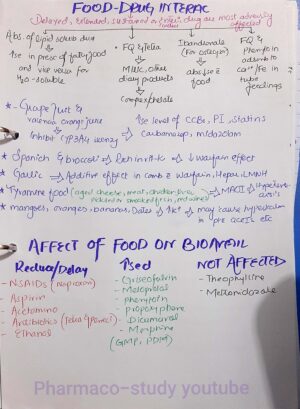 FOOD-DRUG INTERAC
Delayed, extended, sustained or enteric drug are most adversly affected
Abs. of lipid solub drug
↑se in presc of fatty food
and vice versa for
H₂O-soluble
FQ & Tetra
Milk, other
dairy products
Complex/chelate
Ibandronate
(For osteopor)
abs if s̄ food
FQ &
Phenytoin
adsorb to
Ca²⁺/Fe in
tube
feedings
* - Grape Juice &
orange juice
Inhibit CYP3A4 enzy
↑se level of CCBs, PI, statins
Carbamazep, midazolam
* Spanich & broccoli → Rich in vit-K → ↓ warfarin effect
* Garlic → Additive effect in comb c̄ warfarin, Heparin, LMWH
* Tyramine food (aged cheese, meat, chicken liver, smoked fish, red wines) → MAOI → Hypertens. crisis
* mangoes, oranges, bananas, Dates → ↑K⁺ → may cause hyperkalem in pts ACEIs etc
AFFECT OF FOOD ON BIOAVAIL
Reduce/Delay
- NSAIDs (Naproxen)
- Aspirin
- Acetamino
- Antibiotics (Tetra & Penici)
- Ethanol
↑sed
- Griseofulvin
- Metoprolol
- phenytoin
- Propoxyphene
- Dicumarol
- Morphine
(GMP, PDM)
NOT AFFECTED
- Theophylline
- Metronidazole
Pharmaco-study youtube